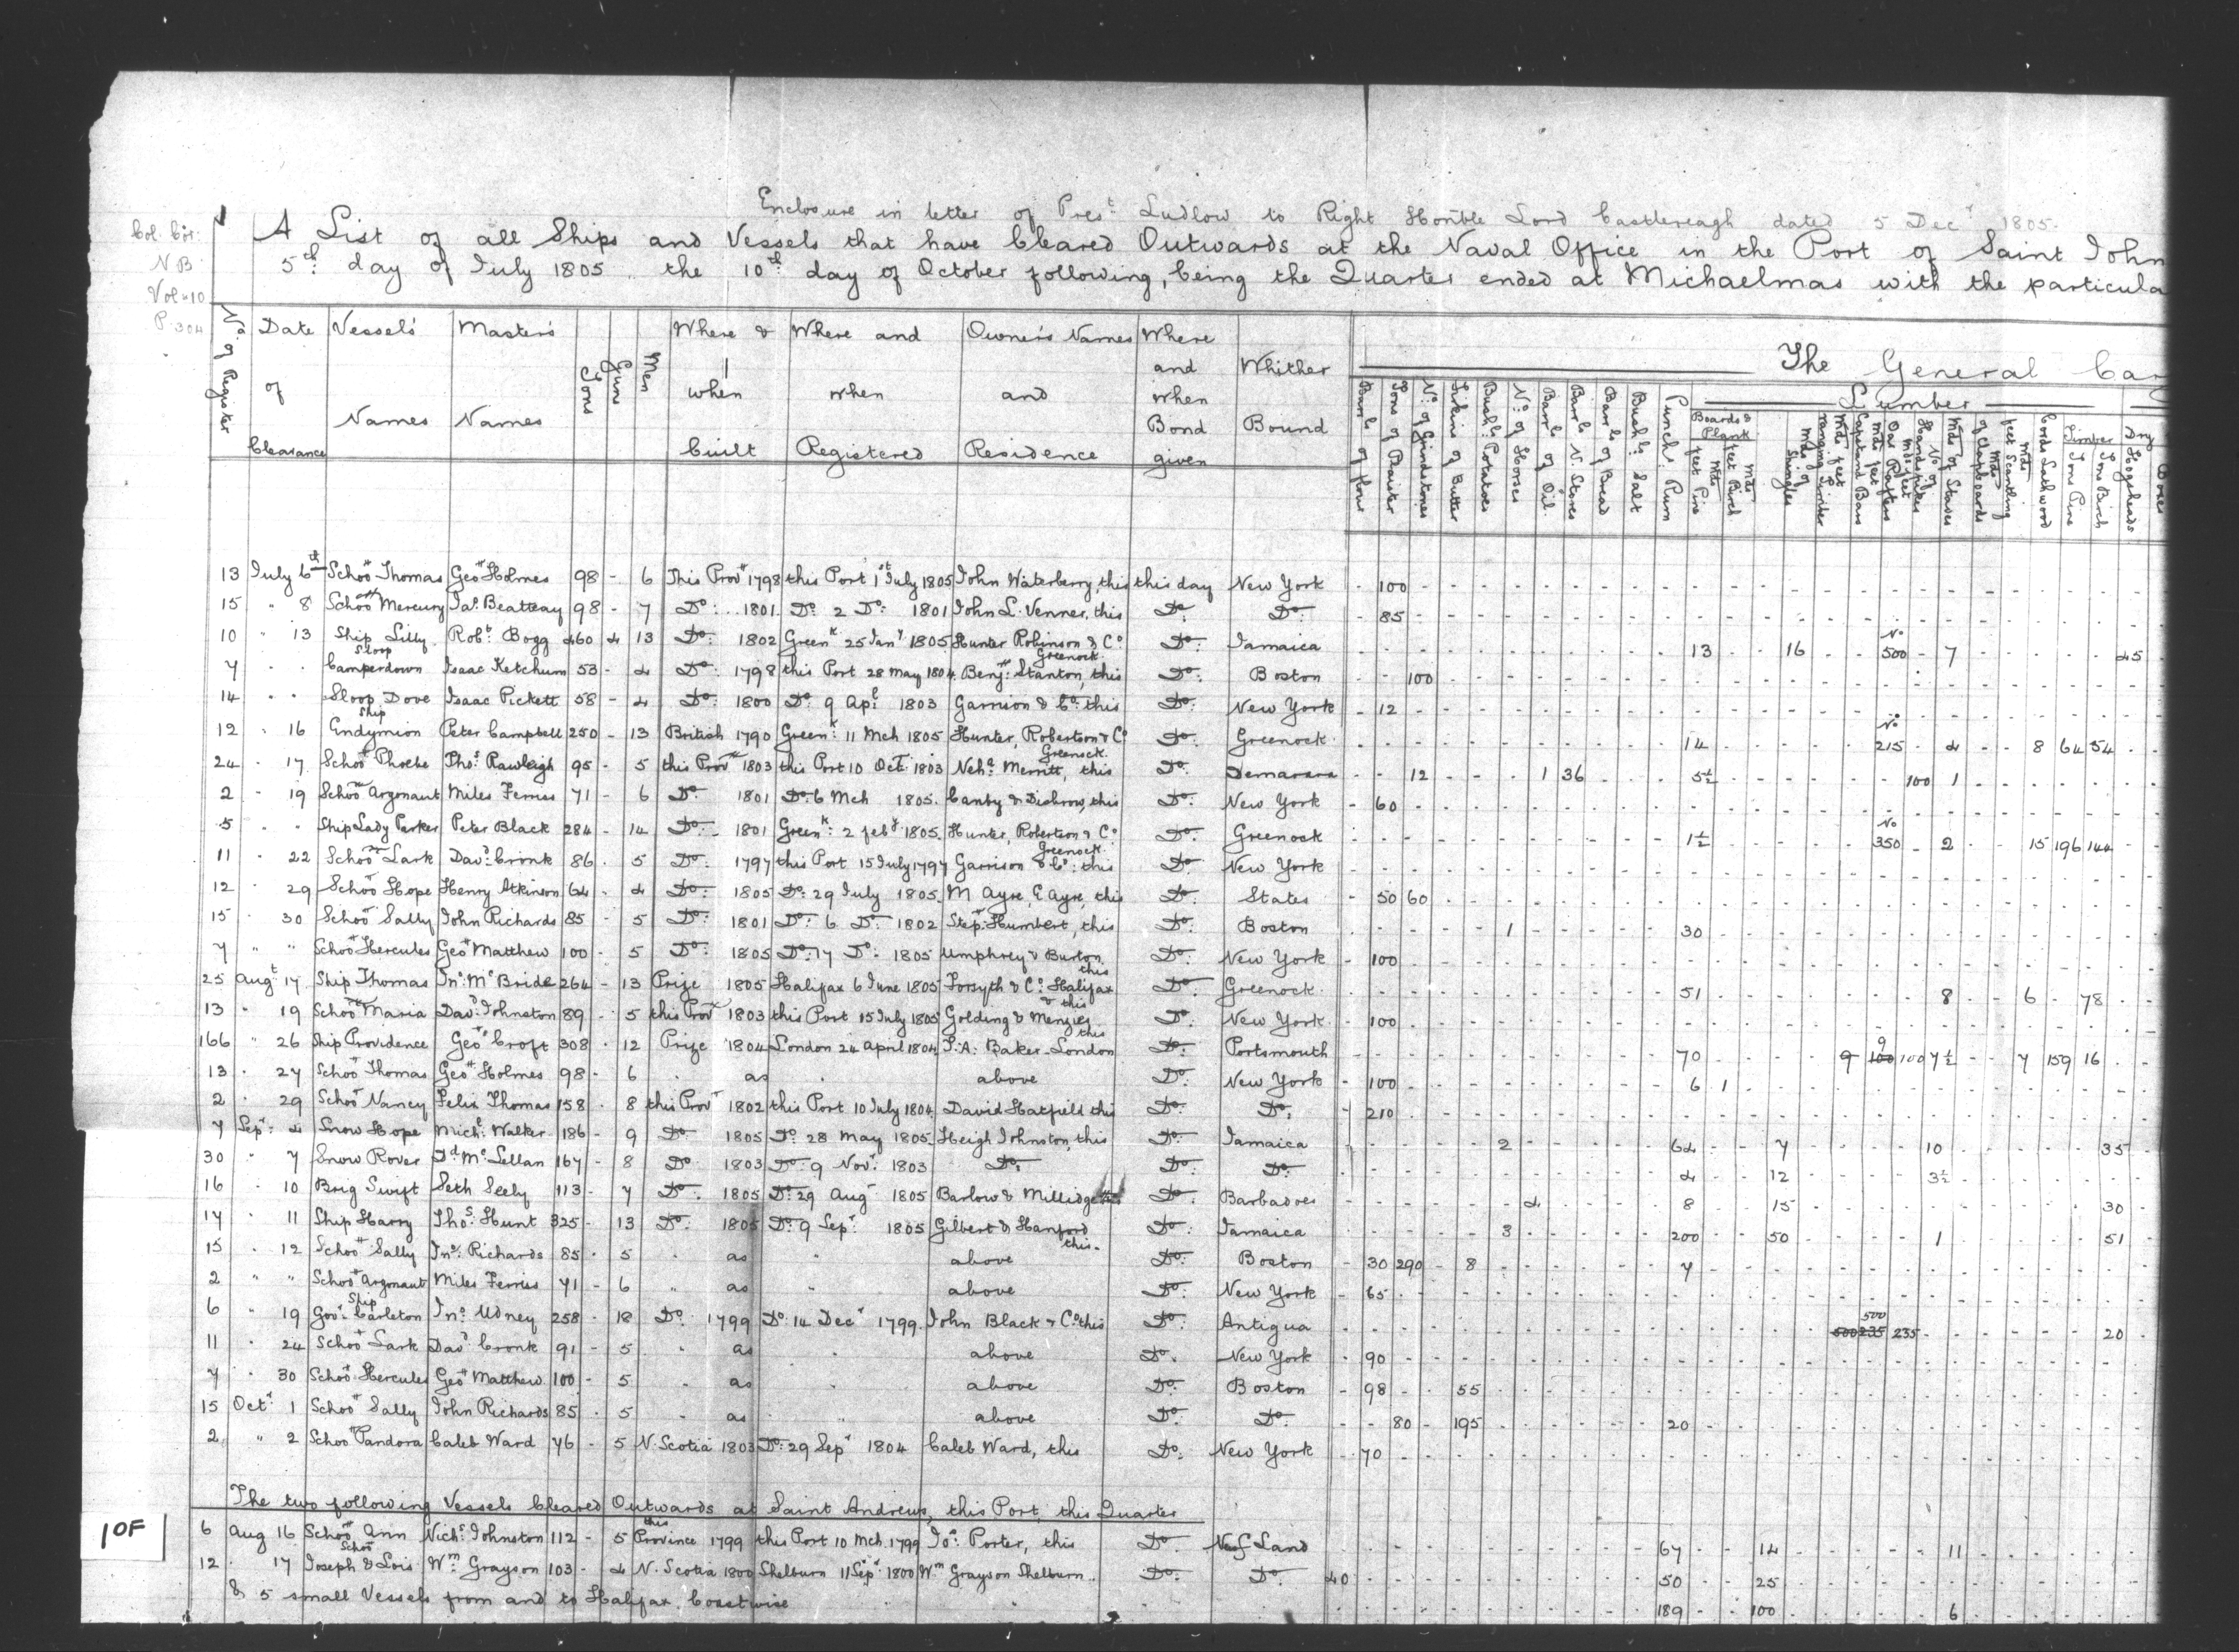 Enclosure in letter of Prest. Ludlow to Right Honble Lord Castlereagh dated 5 Decr 1805.
Col. Cor.
N B
Vol. 10
P. 304
A List of all Ships and Vessels that have Cleared Outwards at the Naval Office in the Port of Saint John
5th. day of July 1805 .. the 10th day of October following, being the Quarter ended at Michaelmas with the particula
No. of Register | Date of Clearance | Vessels' Names | Master's Names | Tons | Guns | Men | Where & when Built | Where and when Registered | Owner's Names and Residence | Where and when Bond given | Whither Bound
The General Car
Barrls of Flour | Tons of Plaister | No. of Grindstones | Firkins of Butter | Bushls Potatoes | No. of Horses | Barrls of Oil | Barrls N. Stores | Barrls of Bread | Bushls Salt | Punchs. Rum
Lumber
Boards & Plank | Mds feet Pine | Mds feet Birch | Mds of Shingles | Mds feet ranging Timber | Capstand Bars | Mds feet Oar Rafters | No. of Handspikes | Mds of Staves | Mds of Clapboards | Mds feet Scantling | Cords Lathwood | Timber | Tons Pine | Tons Birch | Dry | Hogsheads | Boxes
13 July 6th Schoor Thomas Geo Holmes 98 - 6 This Prov 1798 this Port 1st July 1805 John Waterberry, this this day New York - 100
15 " 8 Schoor Mercury Jas. Beatteay 98 - 7 Do. 1801 Do. 2 Do. 1801 John L. Venner, this Do. Do. - 85
10 " 13 Ship Lilly Robt. Bogg 460 4 13 Do. 1802 Greenk 25 Jany 1805 Hunter Robinson & Co. Greenock Do. Jamaica 13 16 No 500 7 45
7 " " Sloop Camperdown Isaac Ketchum 53 - 4 Do. 1798 this Port 28 May 1804 Benj. Stanton, this Do. Boston - - 100
14 " " Sloop Dove Isaac Pickett 58 - 4 Do. 1800 Do. 9 Apl 1803 Garrison & Co. this Do. New York - 12
12 " 16 Ship Endymion Peter Campbell 250 - 13 British 1790 Greenk. 11 Mch 1805 Hunter, Robertson & Co Greenock Do. Greenock 14 No 215 4 8 64 54
24 " 17 Schoor Phoebe Thos. Rawleigh 95 - 5 this Prov 1803 this Port 10 Oct. 1803 Neha. Merritt, this Do. Demarara - - 12 1 36 5½ 100 1
2 " 19 Schoor Argonaut Miles Ferries 71 - 6 Do. 1801 Do. 6 Mch 1805. Canby & Disbrow, this Do. New York - 60
5 " " Ship Lady Parker Peter Black 284 - 14 Do. 1801 Greenk. 2 feby 1805. Hunter, Robertson & Co. Greenock Do. Greenock 1½ No 350 2 15 196 144
11 " 22 Schoor Lark Davd. Cronk 86 - 5 Do. 1797 this Port 15 July 1797 Garrison & Co: this Do. New York
12 " 29 Schoor Hope Henry Atkinson 64 - 4 Do. 1805 Do. 29 July 1805 M Ayre, E Ayre, this Do. States - 50 60
15 " 30 Schoor Sally John Richards 85 - 5 Do. 1801 Do. 6 Do. 1802 Step. Humbert, this Do. Boston 1 30
7 " " Schoor Hercules Geo Matthew 100 - 5 Do. 1805 Do. 17 Do. 1805 Umphrey & Burton, this Do. New York - 100
25 Augt 17 Ship Thomas Jno. McBride 264 - 13 Prize 1805 Halifax 6 June 1805 Forsyth & Co. Halifax & this Do. Greenock 51 8 6 78
13 " 19 Schoor Maria Davd. Johnston 89 - 5 this Prov 1803 this Port 15 July 1805 Golding & Menzies this Do. New York - 100
166 " 26 Ship Providence Geo Croft 308 - 12 Prize 1804 London 24 April 1804 J. A. Baker - London Do. Portsmouth 70 9 9 100 100 7½ 7 159 16
13 " 27 Schoor Thomas Geo Holmes 98 - 6 " as " above Do. New York - 100 6 1
2 " 29 Schoor Nancy Felix Thomas 158 - 8 this Prov 1802 this Port 10 July 1804 David Hatfield this Do. Do. - 210
7 Sept. 4 Snow Hope Michl. Walker 186 - 9 Do. 1805 Do. 28 May 1805 Heigh Johnston, this Do. Jamaica 2 64 7 10 35
30 " 7 Snow Rover Dd. McLellan 167 - 8 Do 1803 Do. 9 Novr. 1803 Do. Do. Do. 4 12 3½
16 " 10 Brig Swift Seth Seely 113 - 7 Do. 1805 Do. 29 Aug 1805 Barlow & Millidge Do. Barbadoes 4 8 15 30
17 " 11 Ship Harry Thos. Hunt 325 - 13 Do. 1805 Do. 9 Sepr 1805 Gilbert & Hanford this Do. Jamaica 3 200 50 1 51
15 " 12 Schoor Sally Jno. Richards 85 - 5 " as " above Do. Boston - 30 290 - 8 7
2 " " Schoor Argonaut Miles Ferries 71 - 6 " as " above Do. New York - 65
6 " 19 Ship Govr. Carleton Jno. Udney 258 - 18 Do. 1799 Do. 14 Decr 1799. John Black & Co. this Do. Antigua 500 500 235 235 20
11 " 24 Schoor Lark Davd Cronk 91 - 5 " as " above Do. New York - 90
7 " 30 Schoor Hercules Geo Matthew 100 - 5 " as " above Do. Boston - 98 55
15 Octr 1 Schoor Sally John Richards 85 - 5 " as " above Do. Do. - - 80 - 195 20
2 " 2 Schoor Pandora Caleb Ward 76 - 5 N. Scotia 1803 Do. 29 Sepr 1804 Caleb Ward, this Do. New York - 70
The two following Vessels Cleared Outwards at Saint Andrews, this Port, this Quarter
6 Aug 16 Schoor Ann Nichs. Johnston 112 - 5 this Province 1799 this Port 10 Mch 1799 Jos. Porter, this Do. Newf Land 67 14 11
12 " 17 Schoor Joseph & Lois Wm. Grayson 103 - 4 N. Scotia 1800 Shelburn 11 Sepr 1800 Wm Grayson Shelburn Do. Do. 40 50 25
& 5 small Vessels from and to Halifax, Coastwise 189 100 6
1 OF